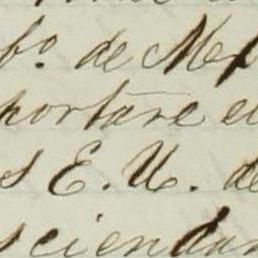 fº. de Mex
portare el
s E. U. de
sciendan